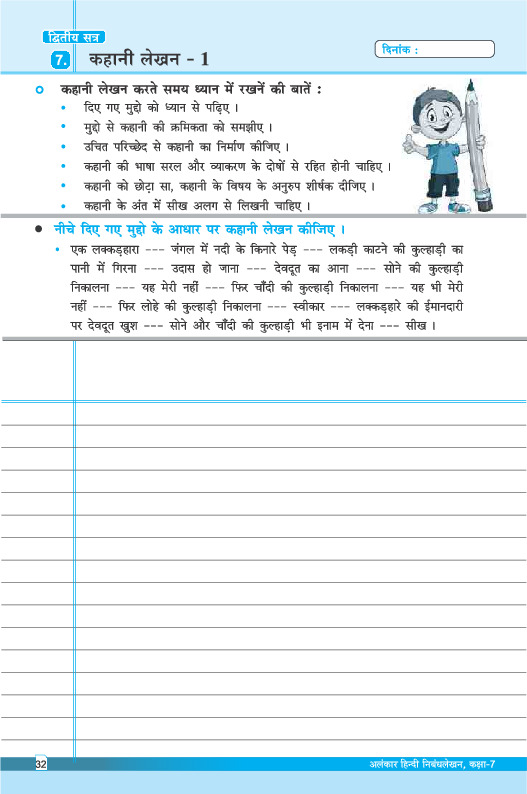 द्वितीय सत्र
7. कहानी लेखन - 1
दिनांक :
कहानी लेखन करते समय ध्यान में रखनें की बातें :
• दिए गए मुद्दो को ध्यान से पढ़िए ।
• मुद्दो से कहानी की क्रमिकता को समझीए ।
• उचित परिच्छेद से कहानी का निर्माण कीजिए ।
• कहानी की भाषा सरल और व्याकरण के दोषों से रहित होनी चाहिए ।
• कहानी को छोटा सा, कहानी के विषय के अनुरुप शीर्षक दीजिए ।
• कहानी के अंत में सीख अलग से लिखनी चाहिए ।
● नीचे दिए गए मुद्दो के आधार पर कहानी लेखन कीजिए ।
• एक लक्कड़हारा --- जंगल में नदी के किनारे पेड़ --- लकड़ी काटने की कुल्हाड़ी का
पानी में गिरना --- उदास हो जाना --- देवदूत का आना --- सोने की कुल्हाड़ी
निकालना --- यह मेरी नहीं --- फिर चाँदी की कुल्हाड़ी निकालना --- यह भी मेरी
नहीं --- फिर लोहे की कुल्हाड़ी निकालना --- स्वीकार --- लक्कड़हारे की ईमानदारी
पर देवदूत खुश --- सोने और चाँदी की कुल्हाड़ी भी इनाम में देना --- सीख ।
32
अलंकार हिन्दी निबंधलेखन, कक्षा-7